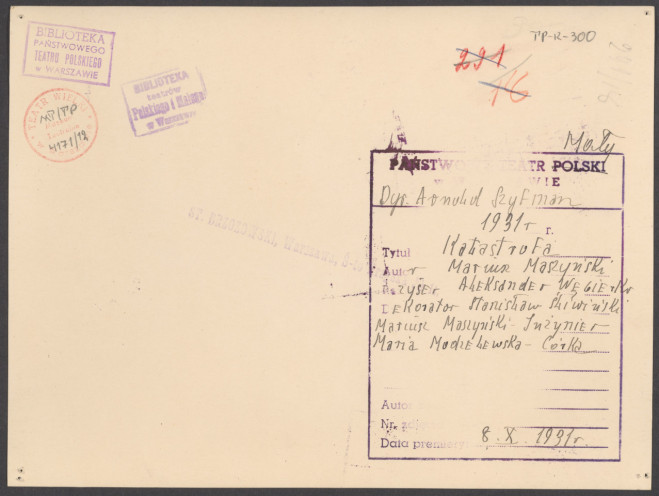 BIBLIOTEKA
PAŃSTWOWEGO
TEATRU POLSKIEGO
w WARSZAWIE
BIBLIOTEKA
teatrów
Polskiego i Małego
w Warszawie
TEATR WIELKI
MT/TP
4171/12
TP-R-300
291
16
Mały
PAŃSTWOWY TEATR POLSKI
W WARSZAWIE
Dyr. Arnold Szyfman
1931 r. r.
Tytuł Katastrofa
Autor Mariusz Maszyński
Reżyser Aleksander Węgierko
Dekorator Stanisław Śliwiński
Mariusz Maszyński - Inżynier
Maria Modzelewska - Córka
Autor
Nr. zdj
Data premiery: 8. X. 1931r.